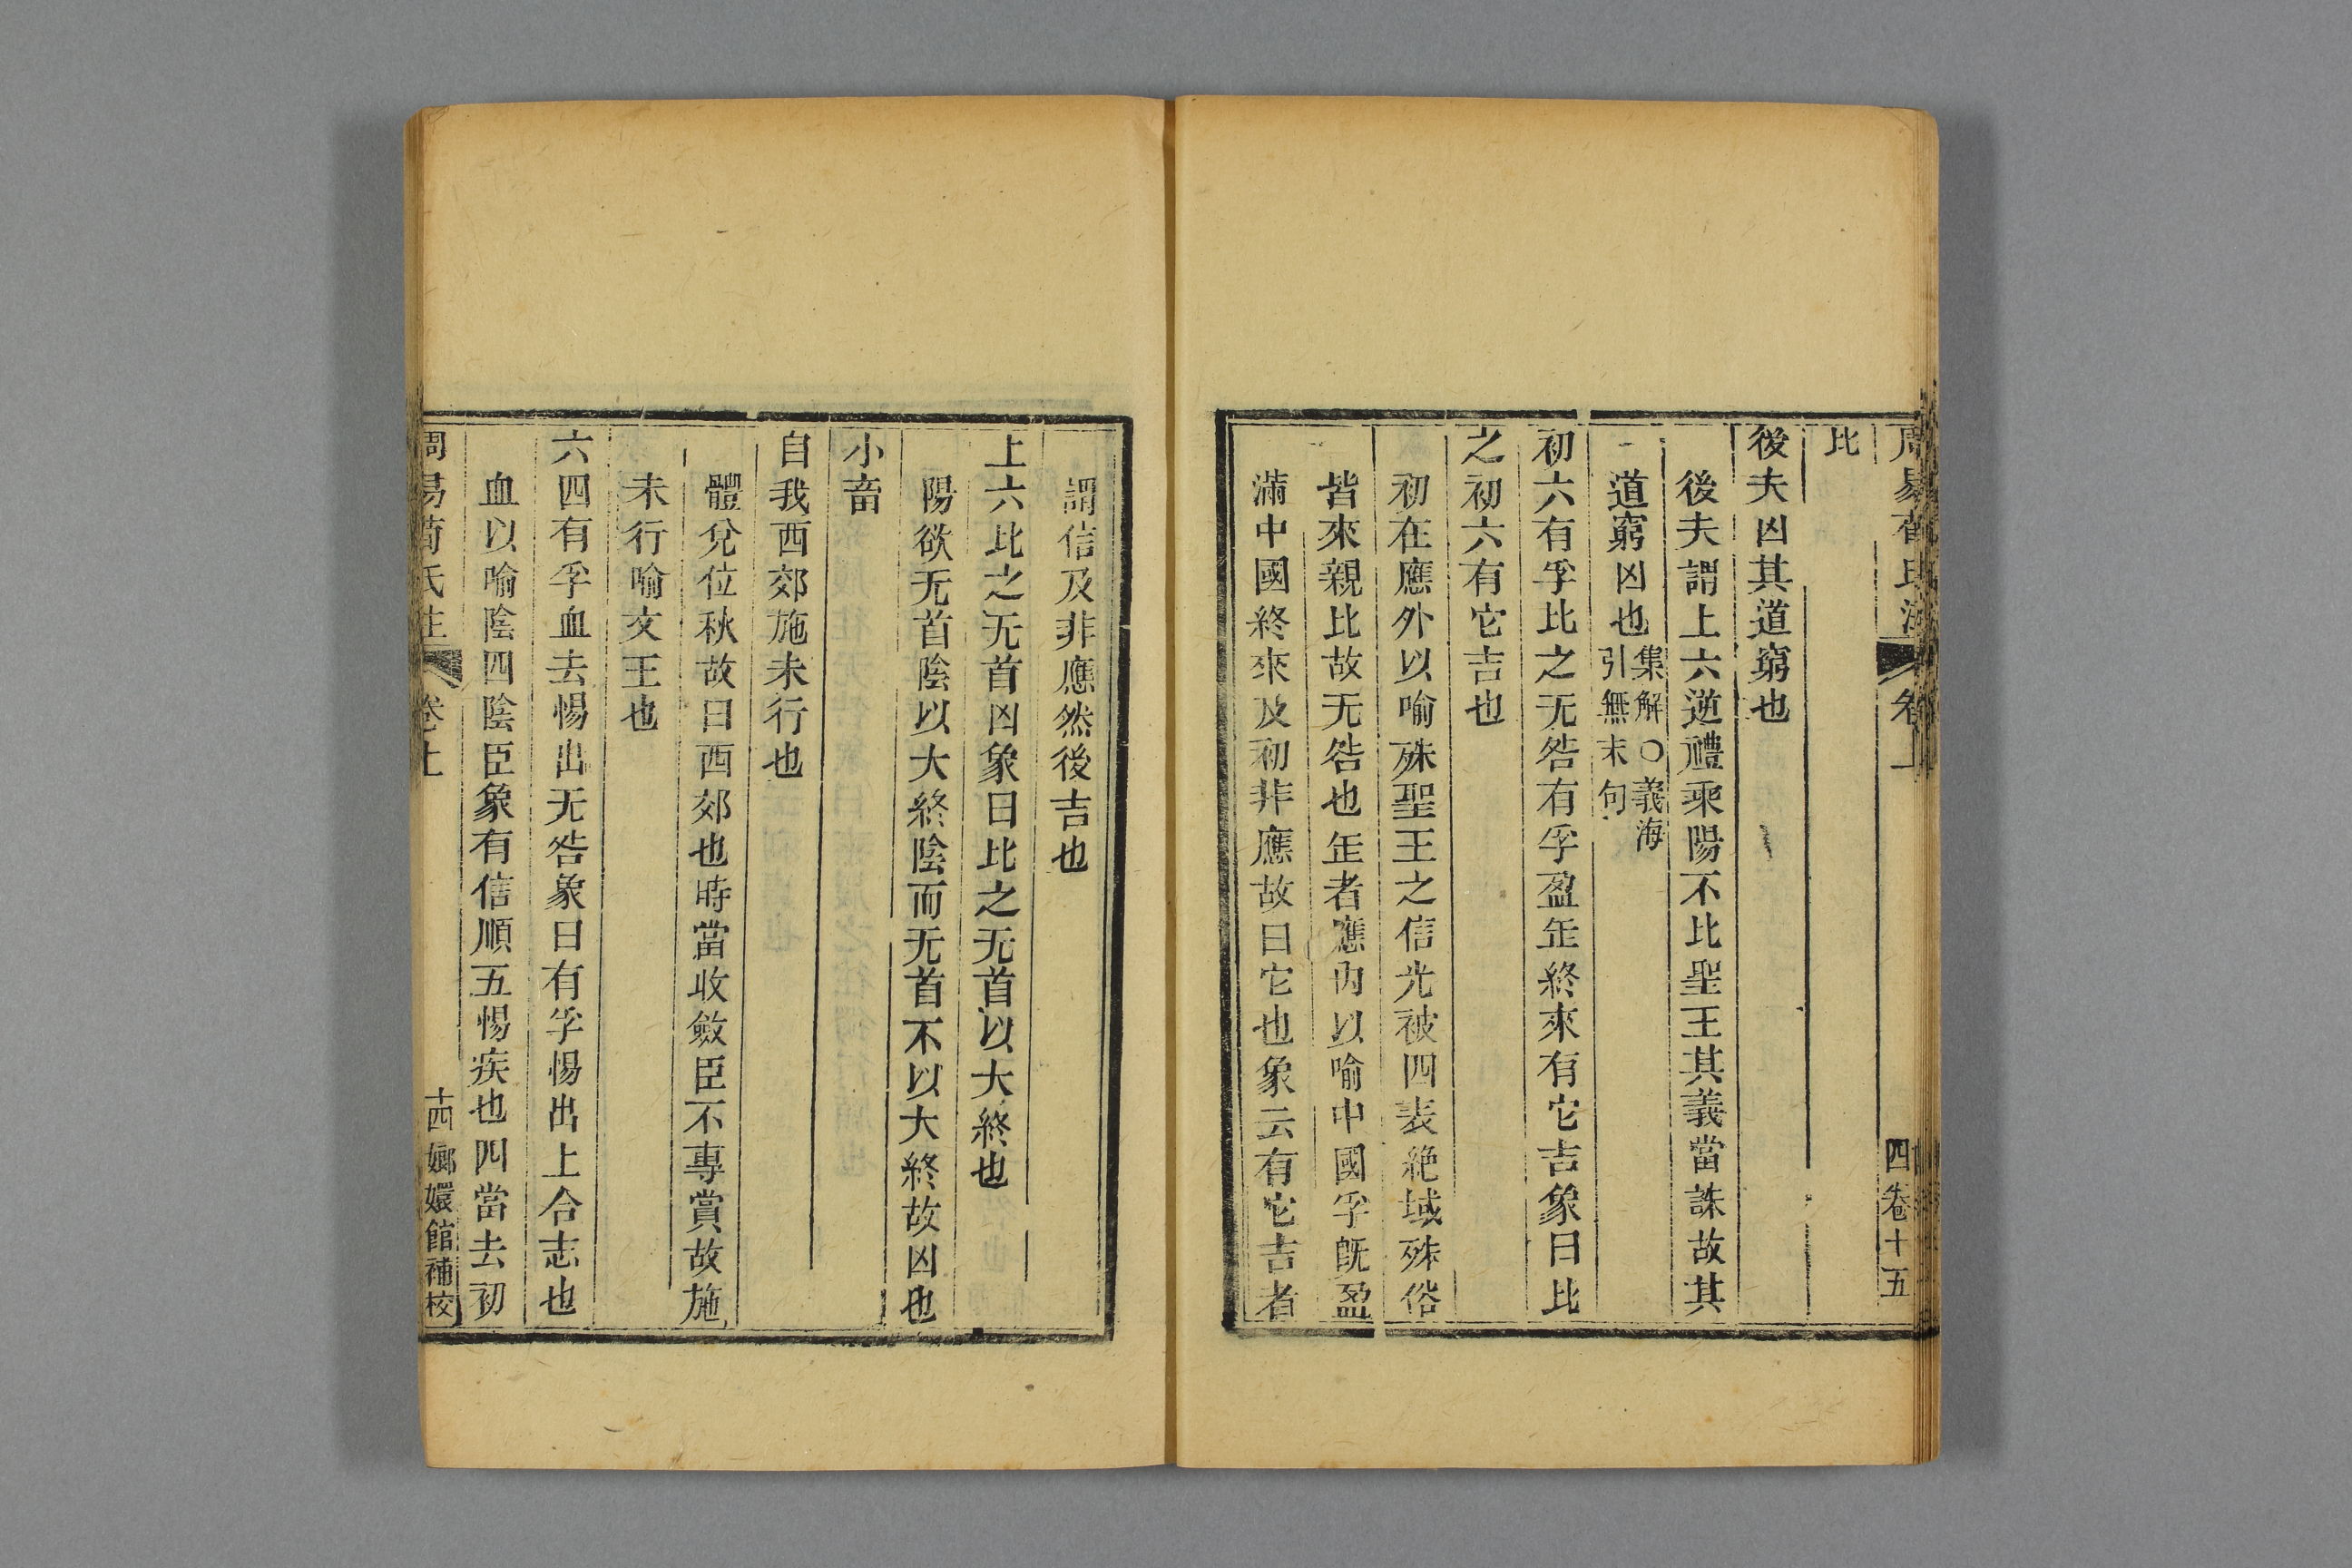 周易荀氏注 卷上 四 卷十五
比
後夫凶其道窮也
後夫謂上六逆禮乘陽不比聖王其義當誅故其
道窮凶也集解○義海
引無末句
初六有孚比之无咎有孚盈缶終來有它吉象曰比
之初六有它吉也
初在應外以喻殊聖王之信光被四表絶域殊俗
皆來親比故无咎也缶者應內以喻中國孚旣盈
滿中國終來及初非應故曰它也象云有它吉者
謂信及非應然後吉也
上六比之无首凶象曰比之无首以大終也
陽欲无首陰以大終陰而无首不以大終故凶也
小畜
自我西郊施未行也
體兌位秋故曰西郊也時當收斂臣不專賞故施
未行喻文王也
六四有孚血去惕出无咎象曰有孚惕出上合志也
血以喻陰四陰臣象有信順五惕疾也四當去初
周易荀氏注 卷上 十四 嫏嬛館補校